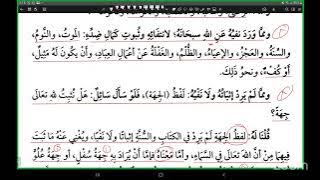 وممَّا وَرَدَ نَفْيُهُ عَنِ اللهِ سبحانَهُ؛ لانتفائِهِ وثُبوتِ كمالِ ضِدِّهِ: الموْتُ، والنَّومُ،
والسِّنَةُ، والعَجْزُ، والإعياءُ، والظُّلْمُ، والغَفْلَةُ عَنْ أعمالِ العِبادِ، وأنْ يكونَ لَهُ مَثِيلٌ،
أوْ كُفْءٌ، ونحوُ ذلكَ.
وممَّا لَمْ يَرِدْ إثباتُهُ ولَا نَفْيُهُ: لَفْظُ (الجِهَة)، فَلَوْ سَأَلَ سَائِلٌ: هَلْ تُثبِتُ للهِ تَعَالَى
جِهَةً؟
قُلنَا لَهُ: لَفظُ الجِهَةِ لَمْ يَرِدْ فِي الكتَابِ والسُّنَّةِ إثبَاتًا وَلَا نَفْيًا، ويُغْنِي عَنْهُ مَا ثَبَتَ
فِيهِمَا مِنْ أَنَّ اللهَ تَعَالَى فِي السَّمَاءِ، وَأمَّا مَعنَاهُ فَإمَّا أنْ يُرَادَ بِهِ جِهَةُ سُفْلٍ، أَوْ جِهَةُ عُلُوٍّ